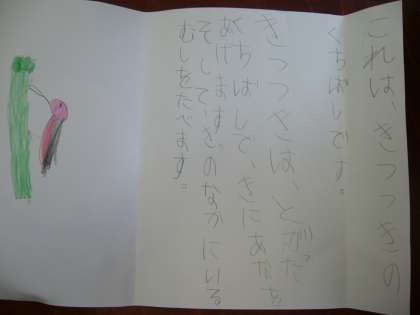 これは、きつつきの
くちばしです。
きつつきは、とがった
くちばしで、きにあなを
あけます。
そして、きのなかにいる
むしをたべます。